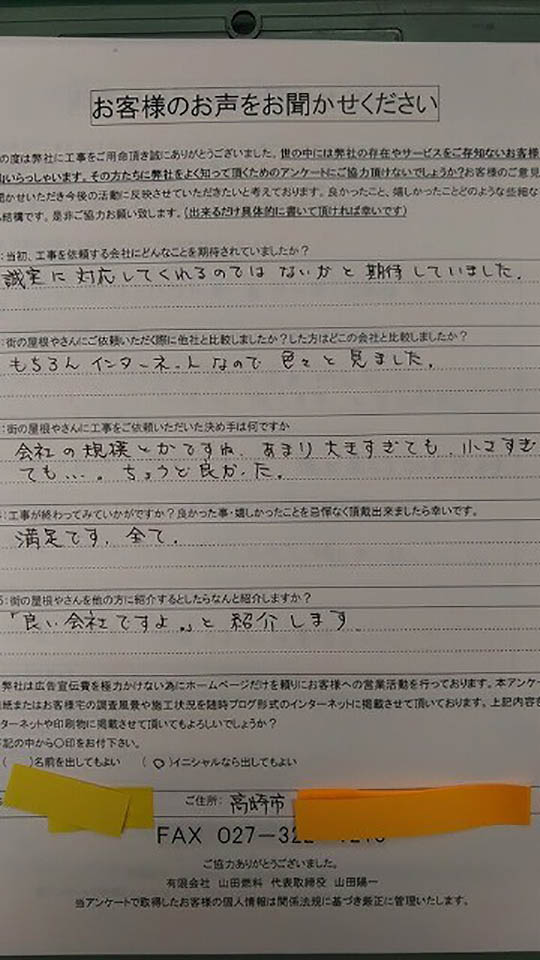 お客様のお声をお聞かせください
の度は弊社に工事をご用命頂き誠にありがとうございました。世の中には弊社の存在やサービスをご存知ないお客様
いらっしゃいます。その方たちに弊社をよく知って頂くためのアンケートにご協力頂けないでしょうか?お客様のご意見
聞かせいただき今後の活動に反映させていただきたいと考えております。良かったこと、嬉しかったことどのような些細な
結構です。是非ご協力お願い致します。(出来るだけ具体的に書いて頂ければ幸いです)
:当初、工事を依頼する会社にどんなことを期待されていましたか?
誠実に対応してくれるのではないかと期待していました。
:街の屋根やさんにご依頼いただく際に他社と比較しましたか?した方はどこの会社と比較しましたか?
もちろんインターネットなので色々と見ました。
:街の屋根やさんに工事をご依頼いただいた決め手は何ですか
会社の規模とかですね、あまり大きすぎても、小さすぎ
ても…。ちょうど良かった。
:工事が終わってみていかがですか?良かった事・嬉しかったことを忌憚なく頂戴出来ましたら幸いです。
満足です。全て。
5:街の屋根やさんを他の方に紹介するとしたらなんと紹介しますか?
「良い会社ですよ。」と紹介します
弊社は広告宣伝費を極力かけない為にホームページだけを頼りにお客様への営業活動を行っております。本アンケ
紙またはお客様宅の調査風景や施工状況を随時ブログ形式のインターネットに掲載させて頂いております。上記内容を
ターネットや印刷物に掲載させて頂いてもよろしいでしょうか?
下記の中から○印をお付下さい。
( )名前を出してもよい (○)イニシャルなら出してもよい
ご住所: 高崎市
FAX 027-322
ご協力ありがとうございました。
有限会社 山田燃料 代表取締役 山田陽一
当アンケートで取得したお客様の個人情報は関係法規に基づき厳正に管理いたします。